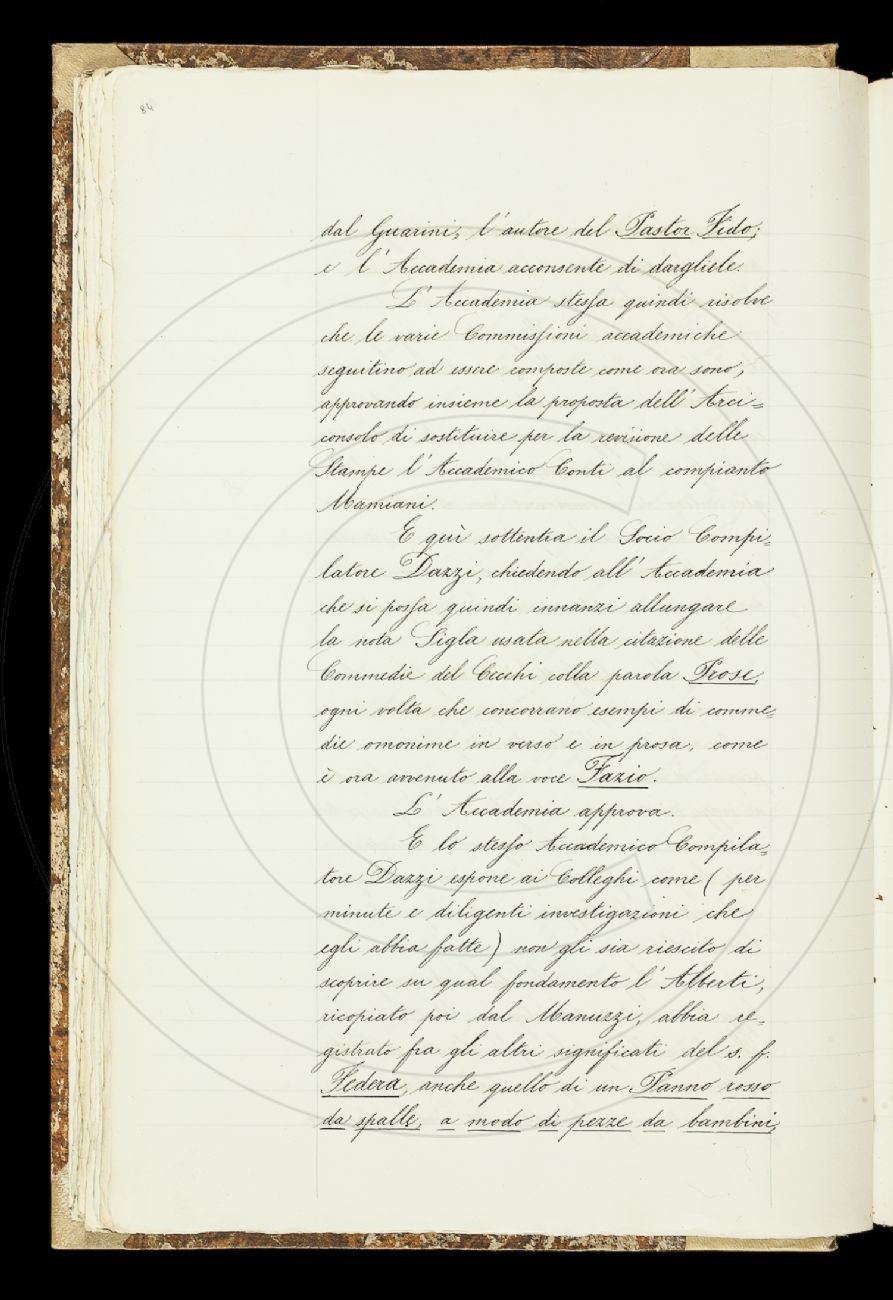 84
dal Guarini, l'autore del Pastor Fido;
e l'Accademia acconsente di dargliele.
L'Accademia stessa quindi risolve
che le varie Commissioni accademiche
seguitino ad essere composte come ora sono,
approvando insieme la proposta dell'Arci=
consolo di sostituire per la revisione delle
Stampe l'Accademico Conti al compianto
Mamiani.
E quì sottentra il Socio Compi=
latore Dazzi, chiedendo all'Accademia
che si possa quindi innanzi allungare
la nota Sigla usata nella citazione delle
Commedie del Cecchi colla parola Prose,
ogni volta che concorrano esempi di comme=
die omonime in verso e in prosa, come
è ora avvenuto alla voce Fazio.
L'Accademia approva.
E lo stesso Accademico Compila=
tore Dazzi espone ai Colleghi come (per
minute e diligenti investigazioni che
egli abbia fatte) non gli sia riescito di
scoprire su qual fondamento l'Alberti,
ricopiato poi dal Manuzzi, abbia re=
gistrato fra gli altri significati del s. f.
Federa, anche quello di un Panno rosso
da spalle, a modo di pezze da bambini,